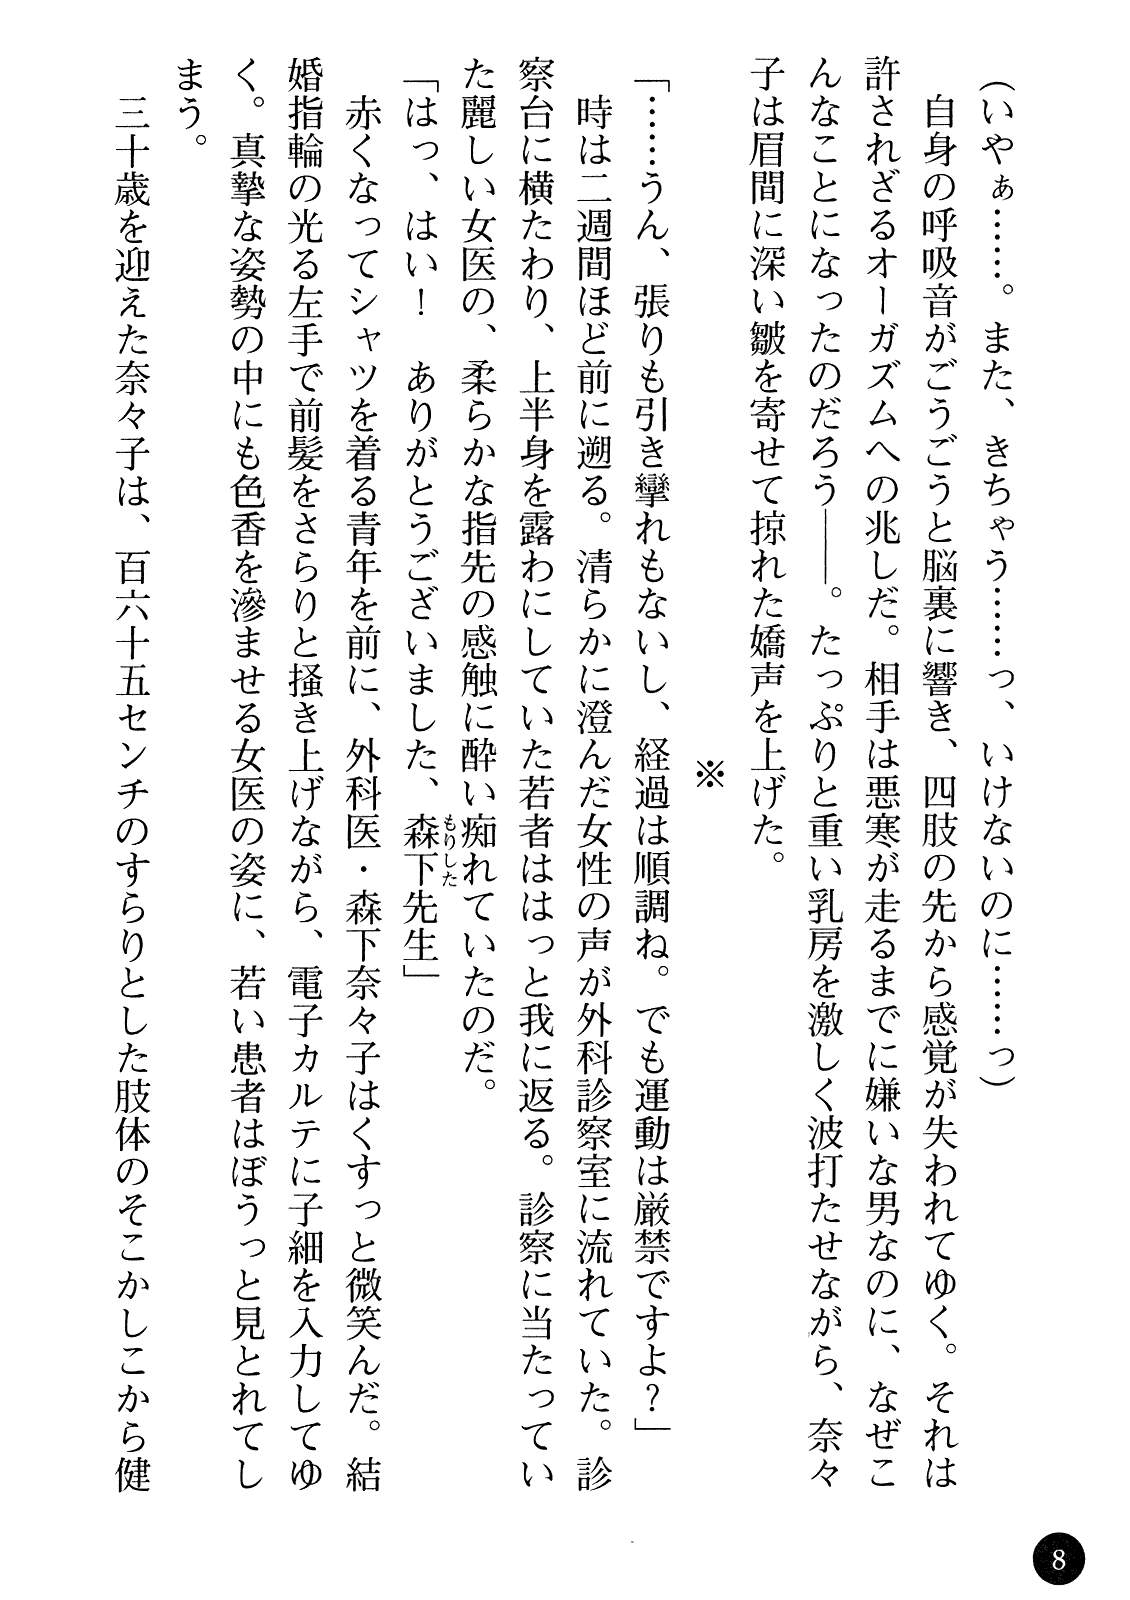 （いやぁ……。また、きちゃう……っ、いけないのに……っ）
　自身の呼吸音がごうごうと脳裏に響き、四肢の先から感覚が失われてゆく。それは
許されざるオーガズムへの兆しだ。相手は悪寒が走るまでに嫌いな男なのに、なぜこ
んなことになったのだろう――。たっぷりと重い乳房を激しく波打たせながら、奈々
子は眉間に深い皺を寄せて掠れた嬌声を上げた。
※
「……うん、張りも引き攣れもないし、経過は順調ね。でも運動は厳禁ですよ？」
　時は二週間ほど前に遡る。清らかに澄んだ女性の声が外科診察室に流れていた。診
察台に横たわり、上半身を露わにしていた若者ははっと我に返る。診察に当たってい
た麗しい女医の、柔らかな指先の感触に酔い痴れていたのだ。
「はっ、はい！　ありがとうございました、森下先生」
もりした
　赤くなってシャツを着る青年を前に、外科医・森下奈々子はくすっと微笑んだ。結
婚指輪の光る左手で前髪をさらりと掻き上げながら、電子カルテに子細を入力してゆ
く。真摯な姿勢の中にも色香を滲ませる女医の姿に、若い患者はぼうっと見とれてし
まう。
　三十歳を迎えた奈々子は、百六十五センチのすらりとした肢体のそこかしこから健
8